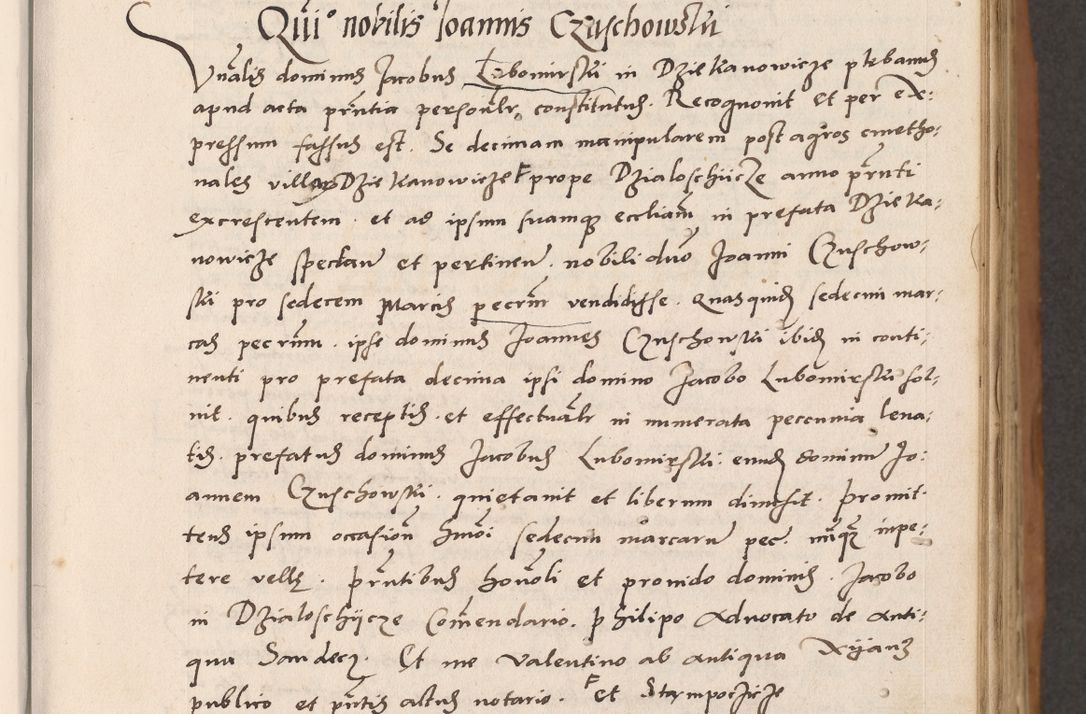 Quito nobilis Joannis Czuschowski
Vnalis dominus Jacobus Lubomirski in Dziekanowicze plebanus
apud acta pntia personalr constitutus. Recognovit et per ex:
pressum fassus est. Se decimam manipularem post agros cmetho:
nales villarum Dziekanowicze et prope Dzialoschicze anno prnti
excrescentem. et ad ipsum suamque eccliam in prefata Dzieka:
nowicze spectan et pertinen. nobili duo Joanni Czuschow:
ski pro sedecem Marcis pecrm vendidisse. quasquid sedecim mar:
cas pecrum. ipse dominus Joannes Czuschowski ibid in conti:
nenti pro prefata decima ipsi domino Jacobo Lubomirski sol:
uit. quibus receptis. et effectualr in numerata pecunia leua:
tis. prefatus dominus Jacobus Lubomirski. eund dominum Jo:
annem Czuschowski. quietauit et liberum dimisit. Promit:
tens ipsum occasion hmoi sedecim marcarum pec. nunquam inpe:
tere velle. Prntibus honoli et prouido dominis. Jacobo
in Dzialoschijcze Commendario. Philipo Aduocato de Anti:
qua Sandecz. Et me Valentino ab antiqua Xijans
publico et pntis actus notario. et Stampoczicze